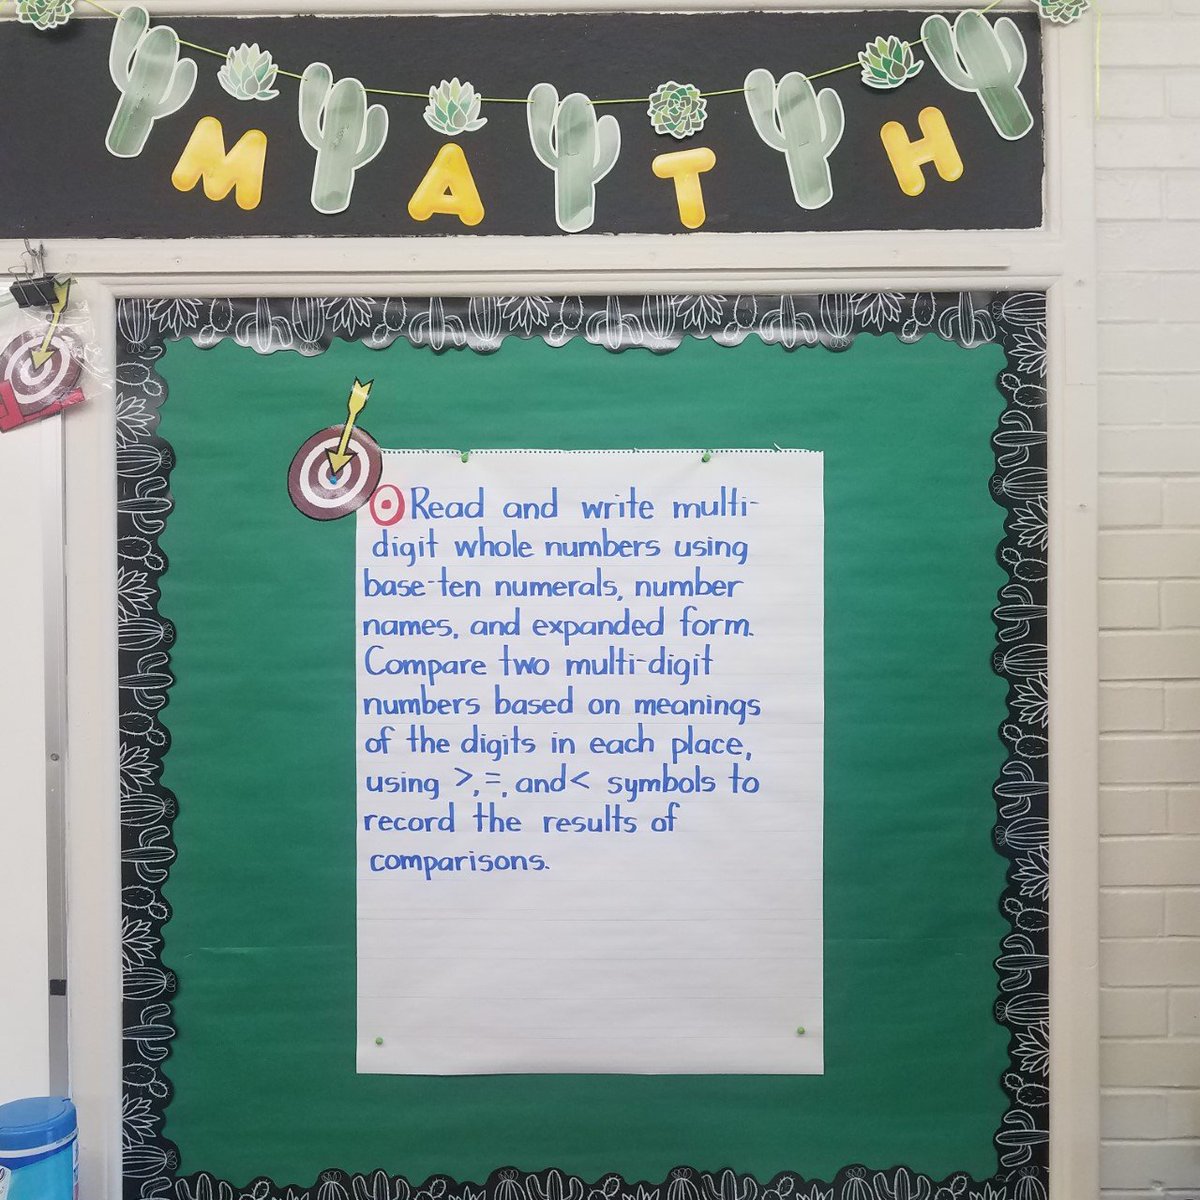 MATH
Read and write multi-
digit whole numbers using
base-ten numerals, number
names, and expanded form.
Compare two multi-digit
numbers based on meanings
of the digits in each place,
using >, =, and < symbols to
record the results of
comparisons.